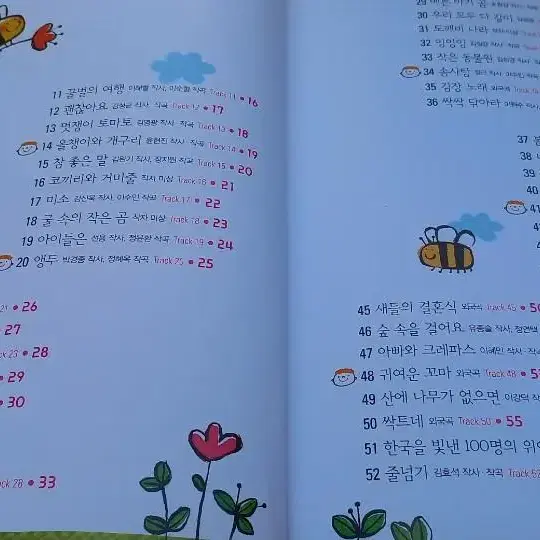 11 꿀벌의 여행 이해별 작사, 이수철 작곡 Track 11 • 16
12 괜찮아요 김성균 작사·작곡 Track 12 • 17
13 멋쟁이 토마토 김영광 작사·작곡 Track 13 • 18
14 올챙이와 개구리 윤현진 작사·작곡 Track 14 • 19
15 참 좋은 말 김완기 작사, 장지원 작곡 Track 15 • 20
16 코끼리와 거미줄 작자 미상 Track 16 • 21
17 미소 김신옥 작사, 이수인 작곡 Track 17 • 22
18 굴 속의 작은 곰 작자 미상 Track 18 • 23
19 아이들은 선용 작사, 정윤환 작곡 Track 19 • 24
20 앵두 박경종 작사, 정혜옥 작곡 Track 25 • 25
21 • 26
• 27
23 • 28
• 29
• 30
Track 28 • 33
29
30 우리 모두 다 같이
31 도깨비 나라
32
33 작은 동물원
34 솜사탕
35 김장 노래 외국곡
36 싹싹 닦아라
37
38
39
40
45 새들의 결혼식 외국곡 Track 45 •
46 숲 속을 걸어요 유종슬 작사, 정연택
47 아빠와 크레파스 이혜민 작사·작곡
48 귀여운 꼬마 외국곡 Track 48 •
49 산에 나무가 없으면 이강덕
50 싹트네 외국곡 Track 50 • 55
51 한국을 빛낸 100명의
52 줄넘기 김효석 작사·작곡 Track 52